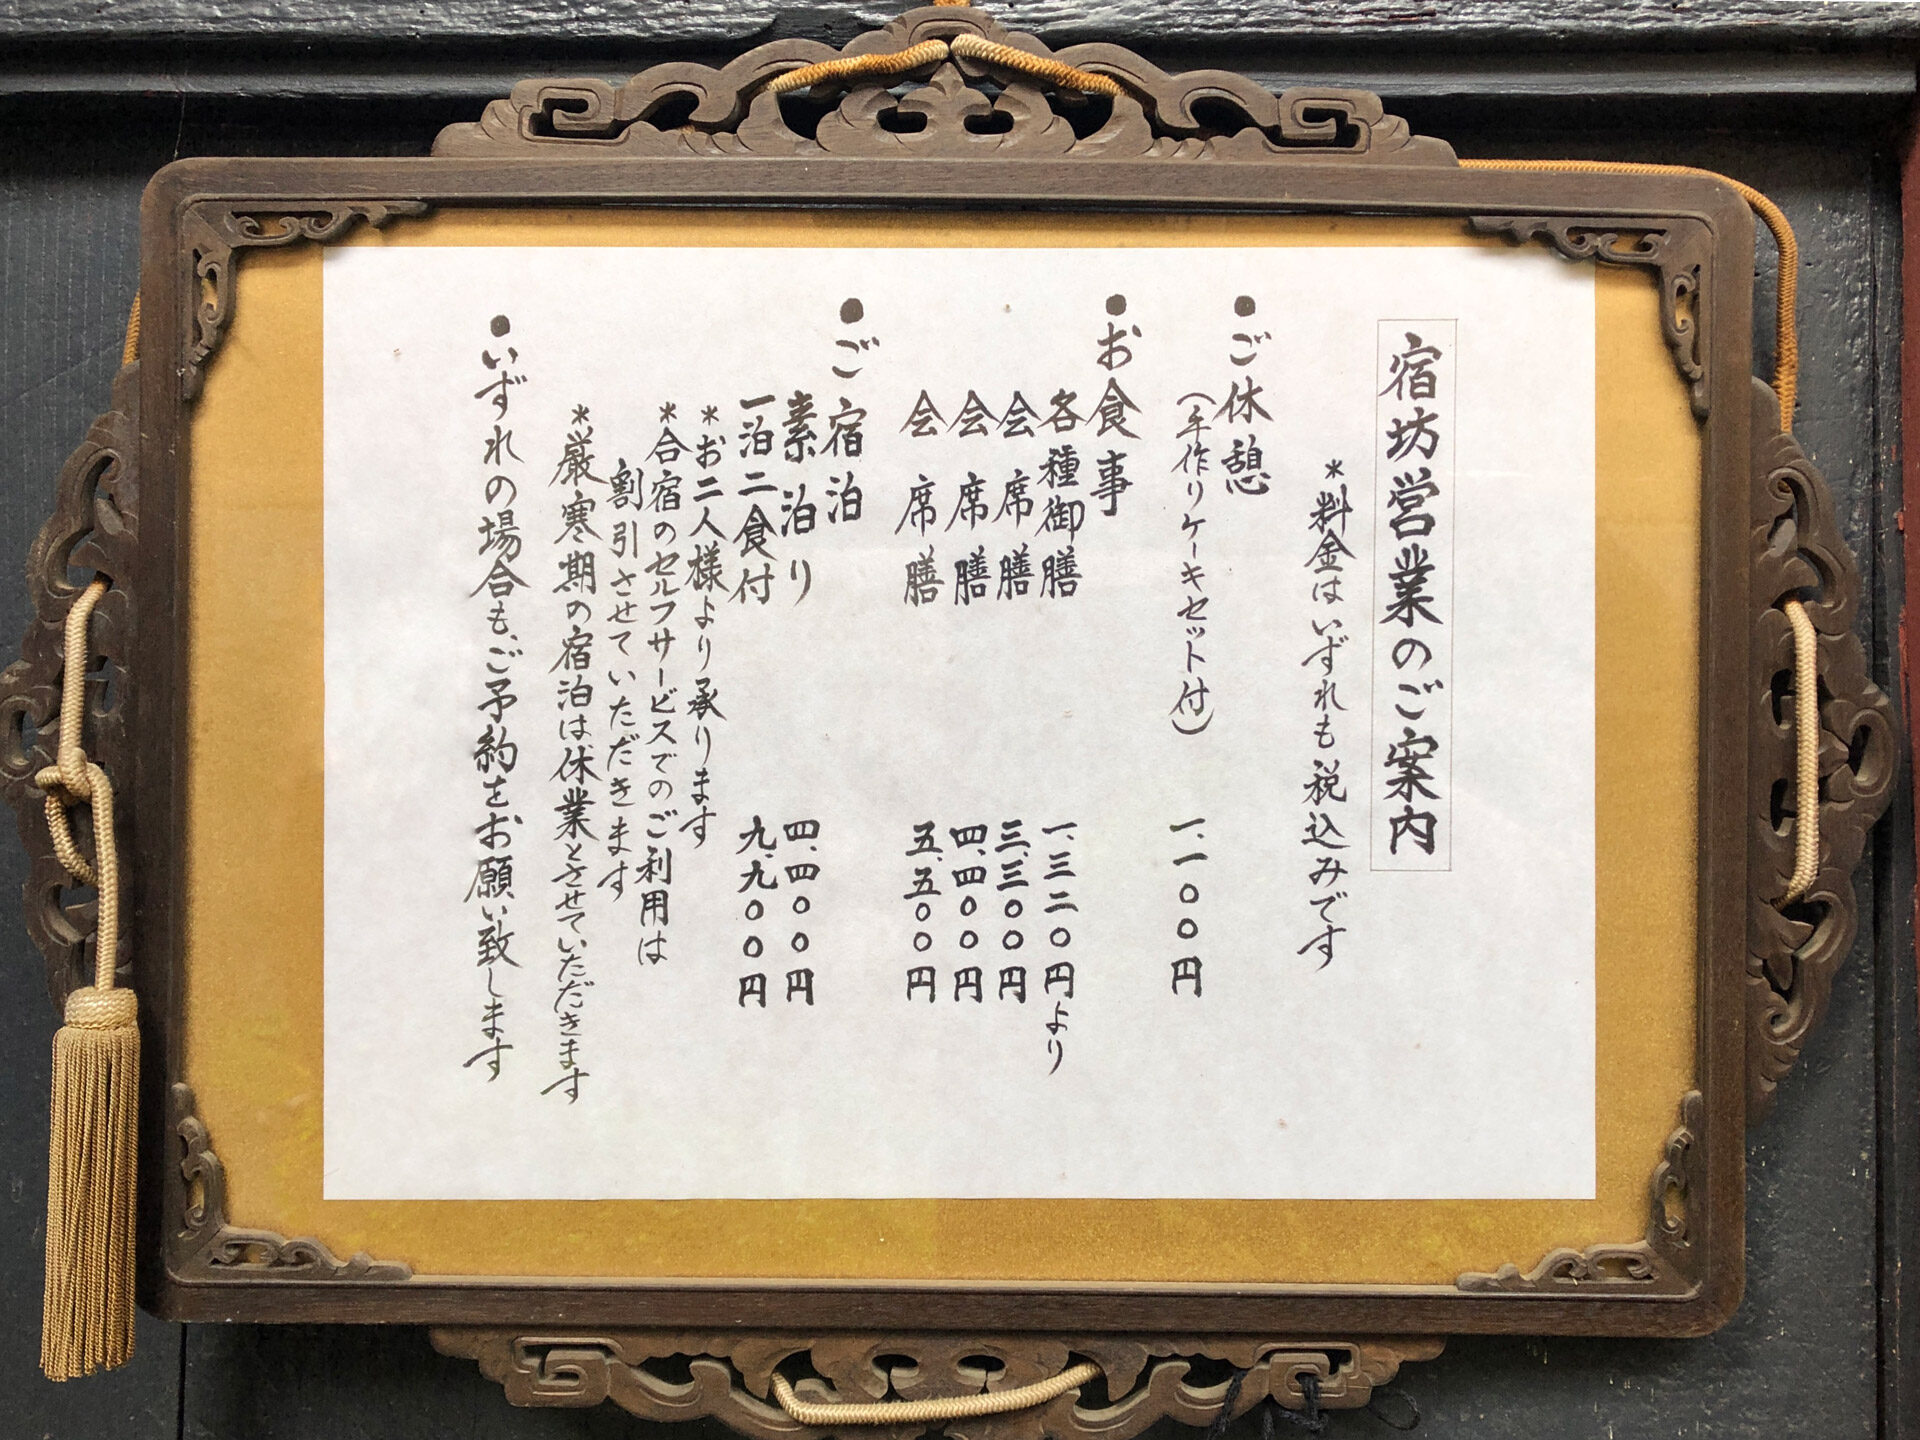 宿坊営業のご案内
＊料金はいずれも税込みです
●ご休憩
（手作りケーキセット付） 一、一〇〇円
●お食事
各種御膳 一、三二〇円より
会席膳 三、三〇〇円
会席膳 四、四〇〇円
会席膳 五、五〇〇円
●ご宿泊
素泊り 四、四〇〇円
一泊二食付 九、九〇〇円
＊お二人様より承ります
＊合宿のセルフサービスでのご利用は
割引させていただきます
＊厳寒期の宿泊は休業とさせていただきます
●いずれの場合も、ご予約をお願い致します